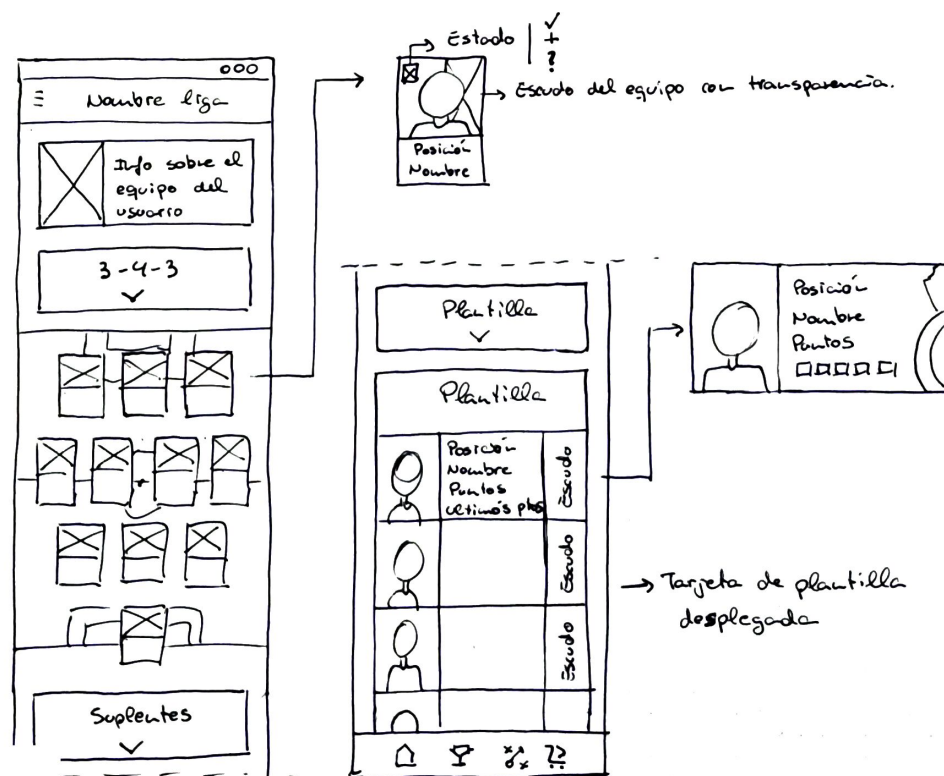 Nombre liga
Info sobre el
equipo del
usuario
3-4-3
Suplentes
Estado
✓
+
?
Escudo del equipo con transparencia.
Posición
Nombre
Plantilla
Plantilla
Posición
Nombre
Puntos
Ultimos ptos
Escudo
Escudo
Escudo
Posición
Nombre
Puntos
Tarjeta de plantilla
desplegada